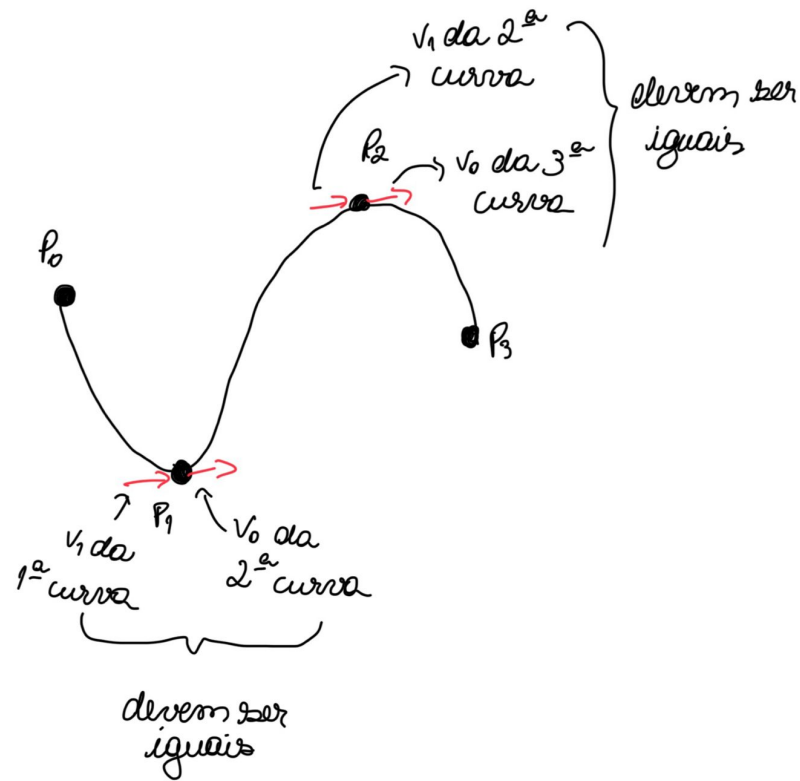 v₁ da 2ª
curva
devem ser
iguais
P₂
v₀ da 3ª
curva
P₀
P₃
P₁
v₁ da
1ª curva
v₀ da
2ª curva
devem ser
iguais